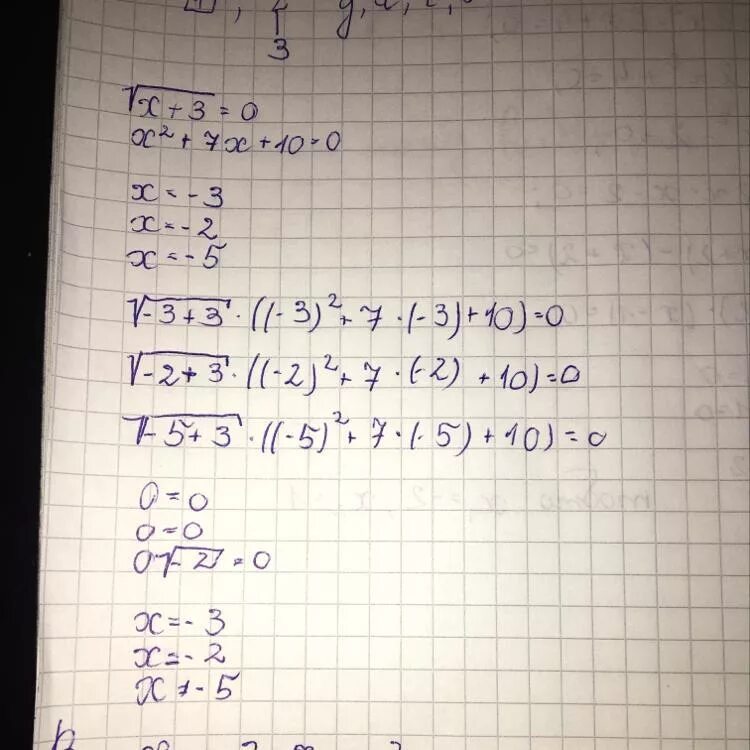 3
√x+3 = 0
x² + 7x + 10 = 0
x = -3
x = -2
x = -5
√-3+3 · ((-3)² + 7 · (-3) + 10) = 0
√-2+3 · ((-2)² + 7 · (-2) + 10) = 0
√-5+3 · ((-5)² + 7 · (-5) + 10) = 0
0 = 0
0 = 0
0√-2 = 0
x = -3
x = -2
x ≠ -5